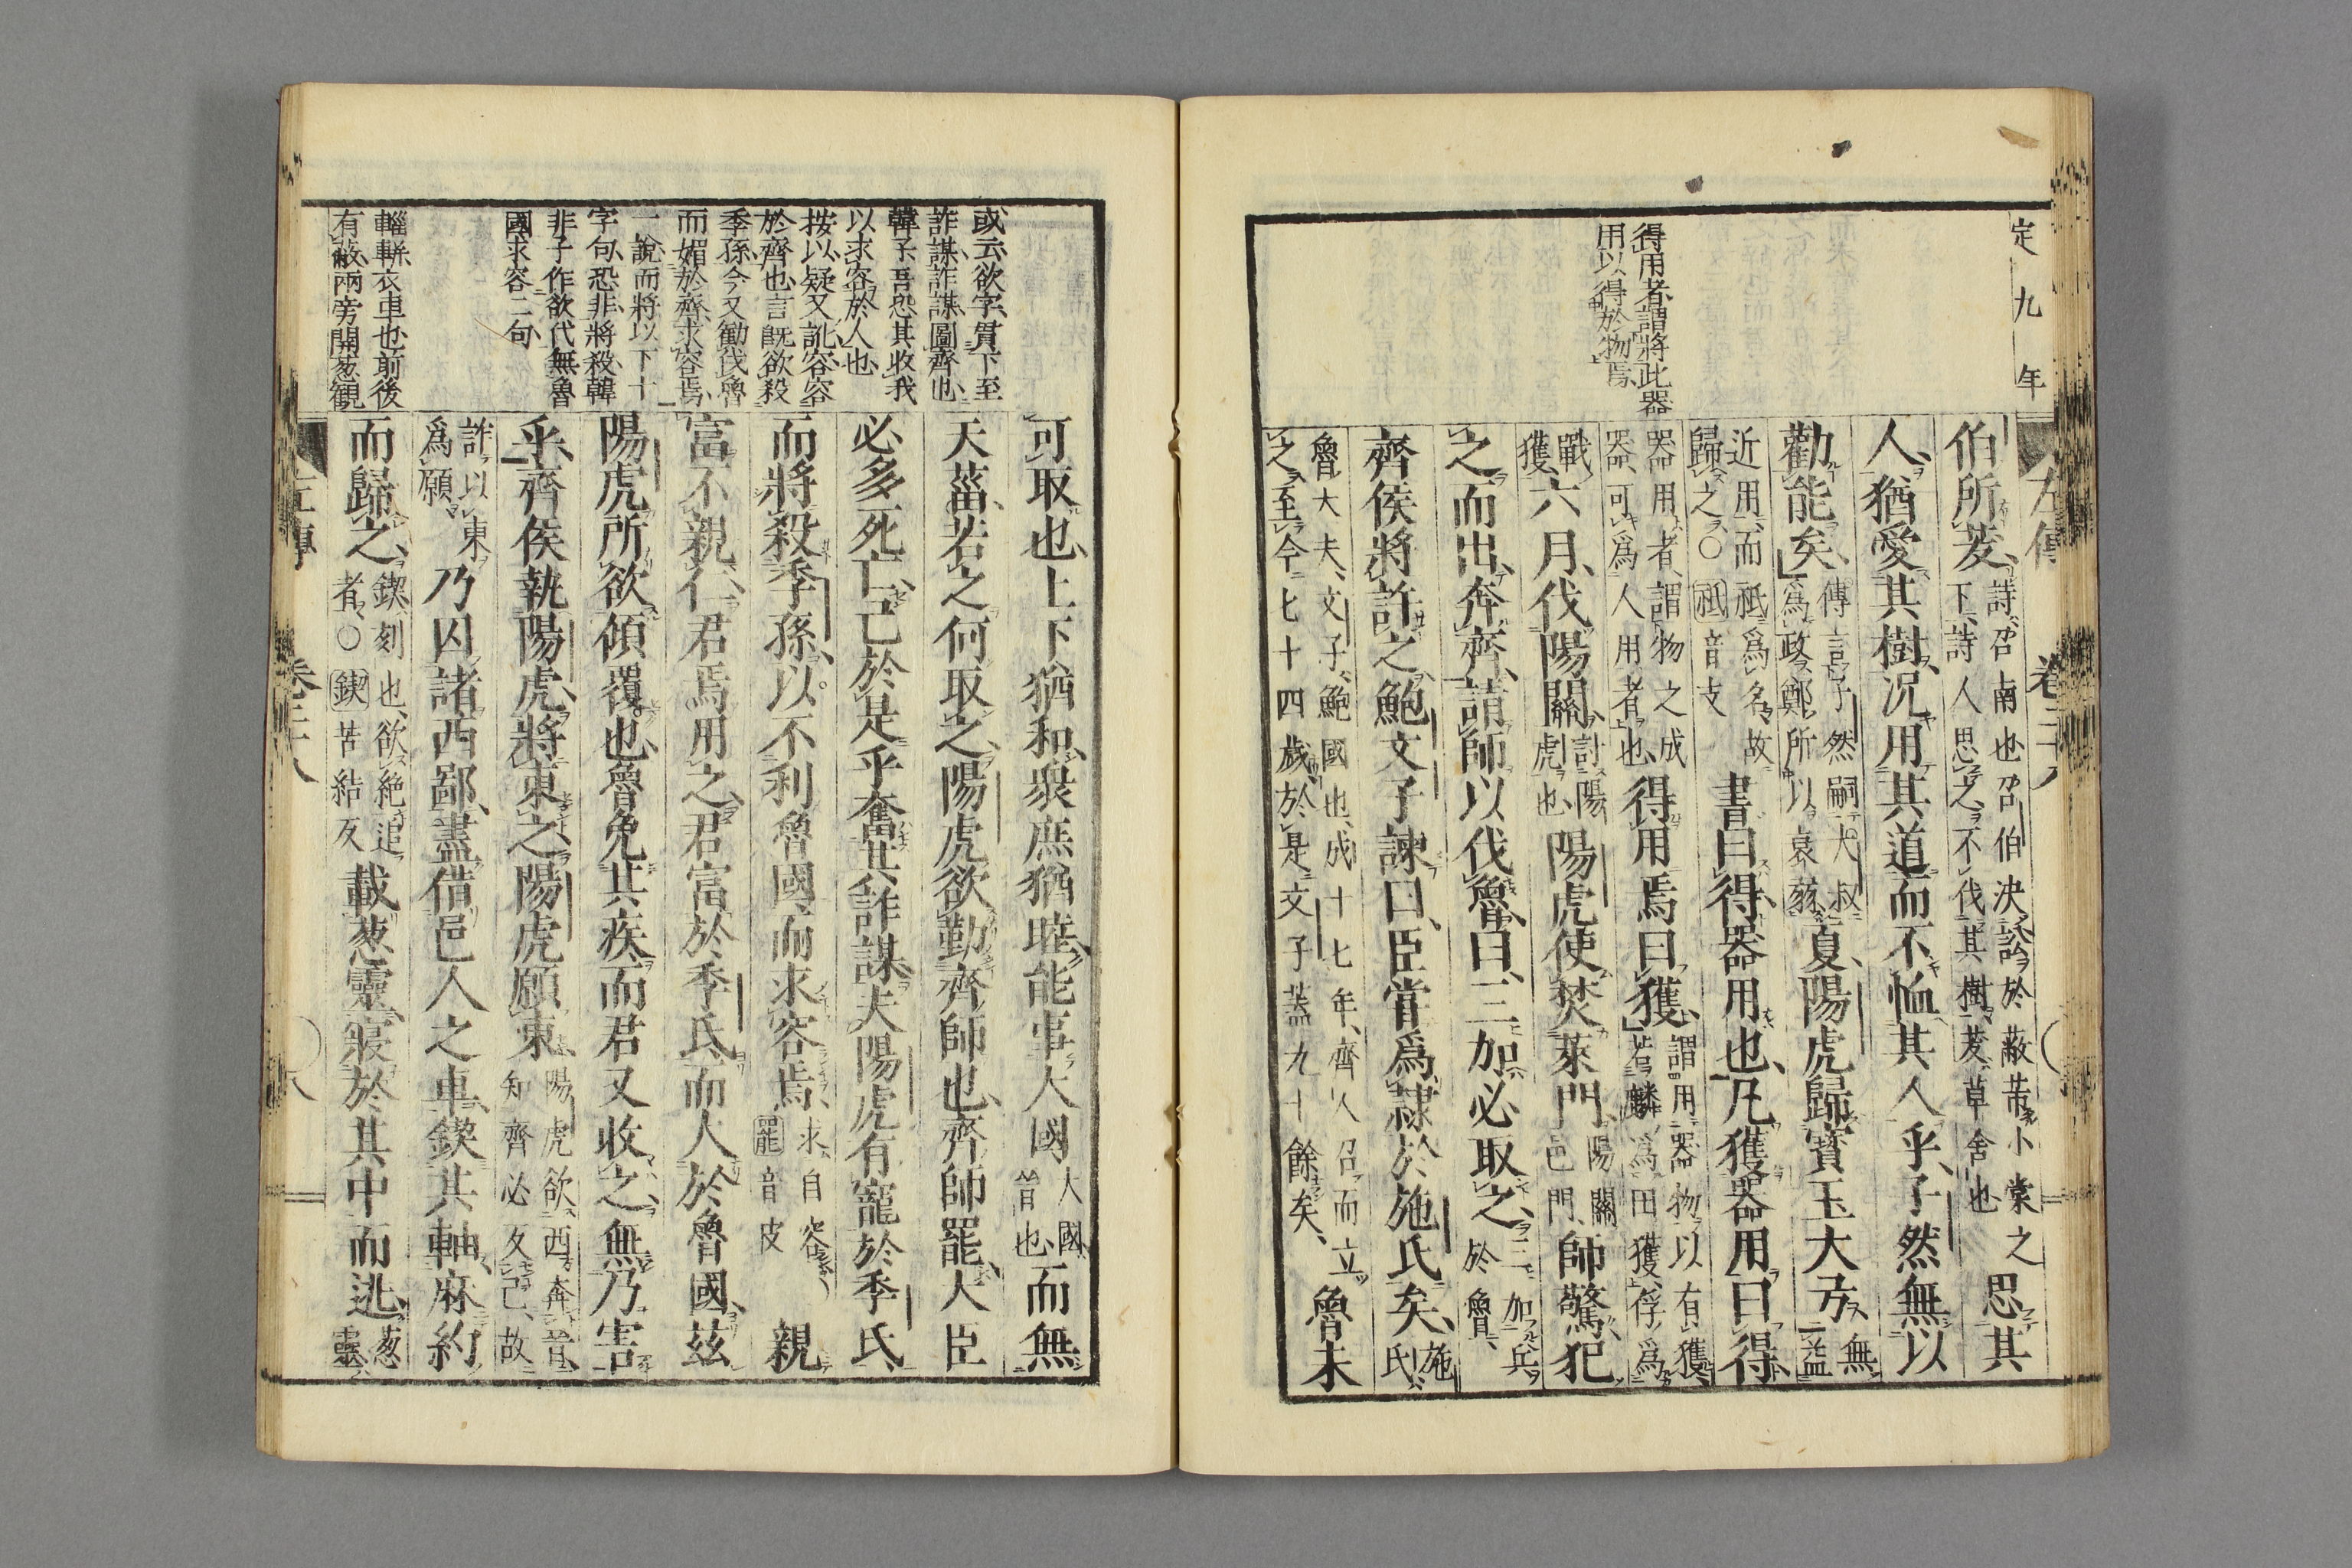 定九年
得用者謂將此器
用以得於物焉
左傳 卷二十八
伯所茇詩召南也召伯決訟於蔽芾小棠之下詩人思之不伐其樹茇草舍也思其
人猶愛其樹況用其道而不恤其人乎子然無以
勸能矣傳言子然嗣大叔爲政鄭所以衰弱夏陽虎歸寶玉大弓無益
近用而祗爲名故歸之○祗音支書曰得器用也凡獲器用曰得
器用者謂物之成器可爲人用者也得用焉曰獲謂用器物以有獲若麟爲田獲俘爲
戰獲六月伐陽關討陽虎也陽虎使焚萊門陽關邑門師驚犯
之而出奔齊請師以伐魯曰三加必取之三加兵於魯
齊侯將許之鮑文子諫曰臣嘗爲隸於施氏矣施氏
魯大夫文子鮑國也成十七年齊人召而立之至今七十四歲於是文子蓋九十餘矣魯未
或云欲字貫下至
詐謀詐謀圖齊也
韓子吾恐其收我
以求容於人也
按以疑又訛容容
於齊也言既欲殺
季孫今又勸伐魯
而媚於齊求容焉
一說而將以下十
字句恐非將殺韓
非子作欲代無魯
國求容二句
輜軿衣車也前後
有蔽兩旁開葱観
可取也上下猶和衆庶猶睦能事大國大國晉也而無
天菑若之何取之陽虎欲勤齊師也齊師罷大臣
必多死亡已於是乎奮其詐謀夫陽虎有寵於季氏
而將殺季孫以不利魯國而求容焉求自容○罷音皮親
富不親仁君焉用之君富於季氏而大於魯國茲
陽虎所欲傾覆也魯免其疾而君又收之無乃害
乎齊侯執陽虎將東之陽虎願東陽虎欲西奔晉知齊必反己故
詐以東爲願乃囚諸西鄙盡借邑人之車鍥其軸麻約
而歸之鍥刻也欲絶追者○鍥苦結反載葱靈寢於其中而逃葱靈
左傳 卷二十八 八